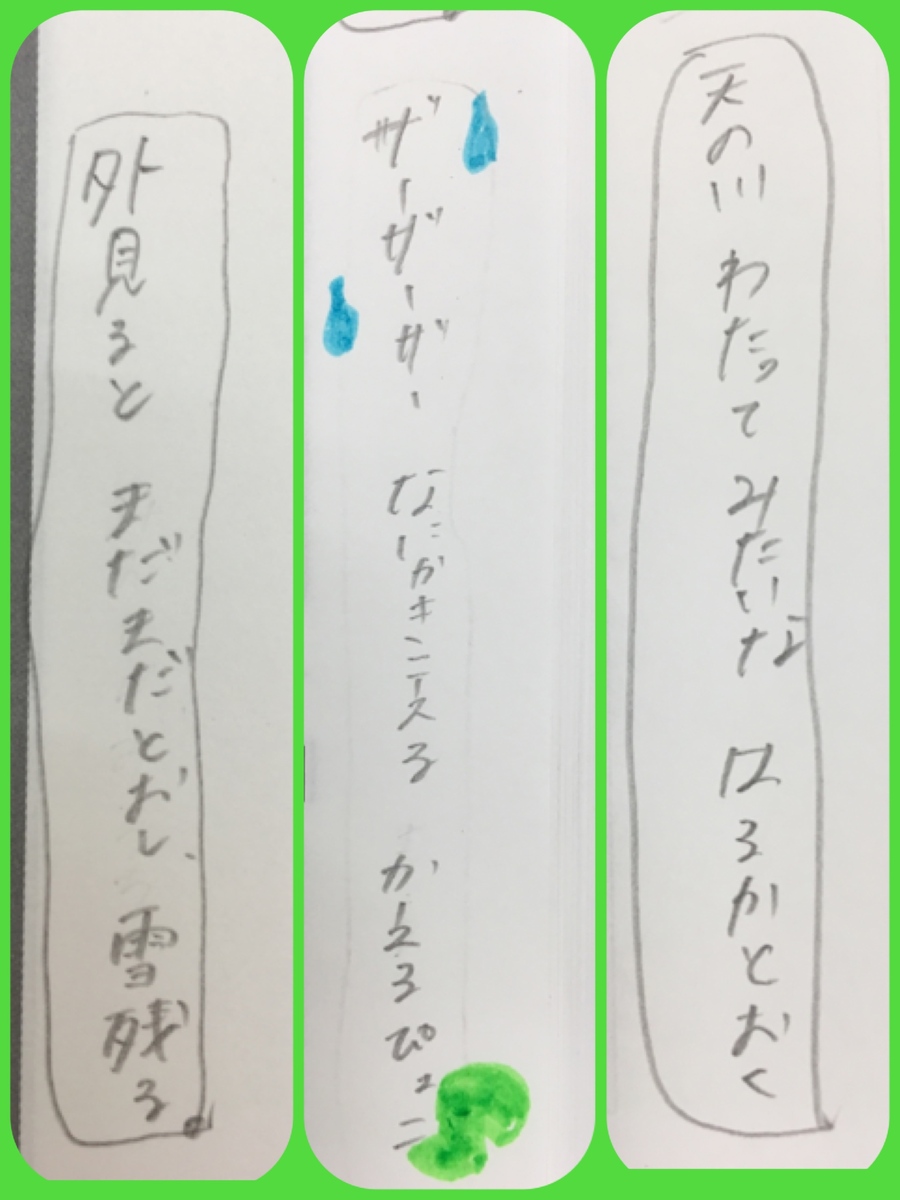 天の川 わたって みたいな はるかとおく
ザーザーザー なにかキこえる かえるぴょこ
外見ると まだまだとおい 雪残る